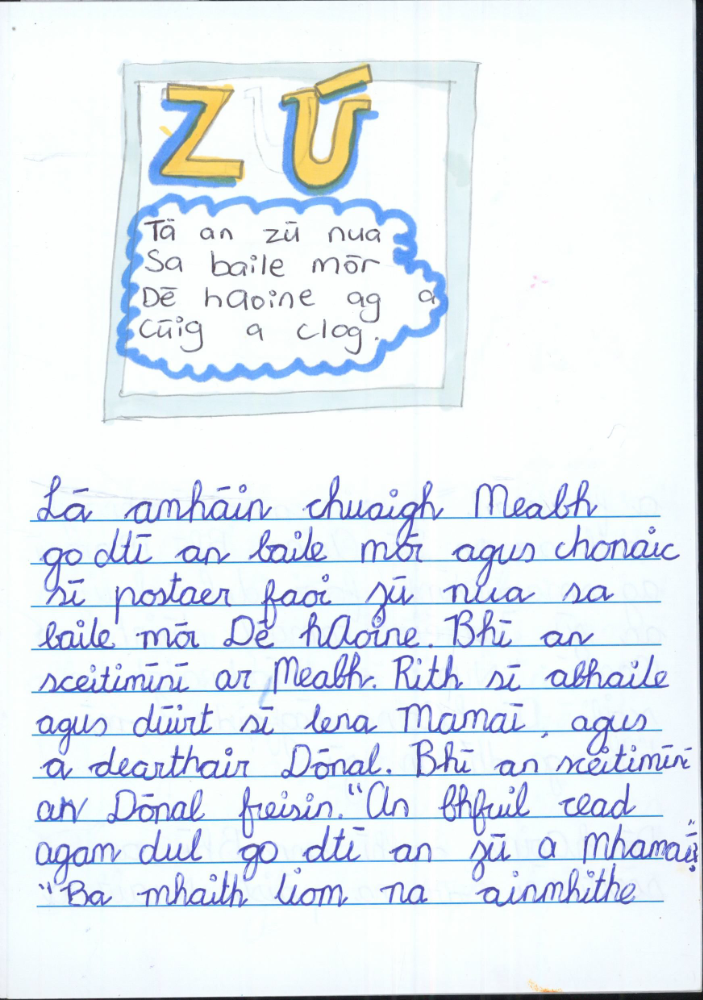 ZÚ
Tá an zú nua
Sa baile mór
Dé hAoine ag a
Cúig a clog.
Lá amháin chuaigh Meabh
go dtí an baile mór agus chonaic
sí postaer faoi zú nua sa
baile mór Dé hAoine. Bhí an
sceitimíní ar Meabh. Rith sí abhaile
agus dúirt sí lena Mamaí, agus
a dearthair Dónal. Bhí an sceitimíní
ar Dónal freisin. "An bhfuil cead
agam dul go dtí an zú a Mhamaí?"
"Ba mhaith liom na ainmhithe